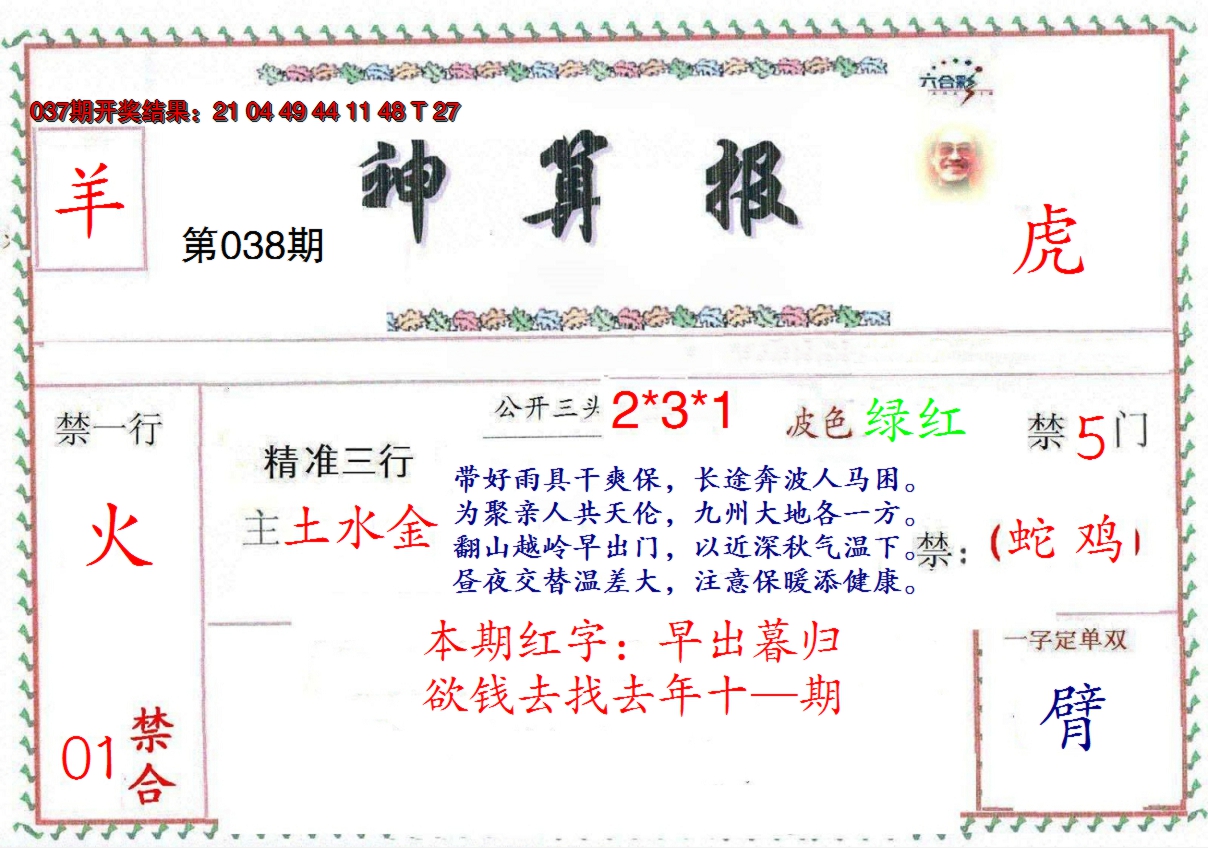 六合彩
037期开奖结果：21 04 49 44 11 48 T 27
神算报
羊
第038期
虎
公开三头 2*3*1
波色 绿红
禁一行
禁5门
精准三行
主土水金
带好雨具干爽保，长途奔波人马困。
为聚亲人共天伦，九州大地各一方。
翻山越岭早出门，以近深秋气温下。
昼夜交替温差大，注意保暖添健康。
禁：（蛇 鸡）
火
本期红字：早出暮归
欲钱去找去年十一期
一字定单双
臂
01 禁合